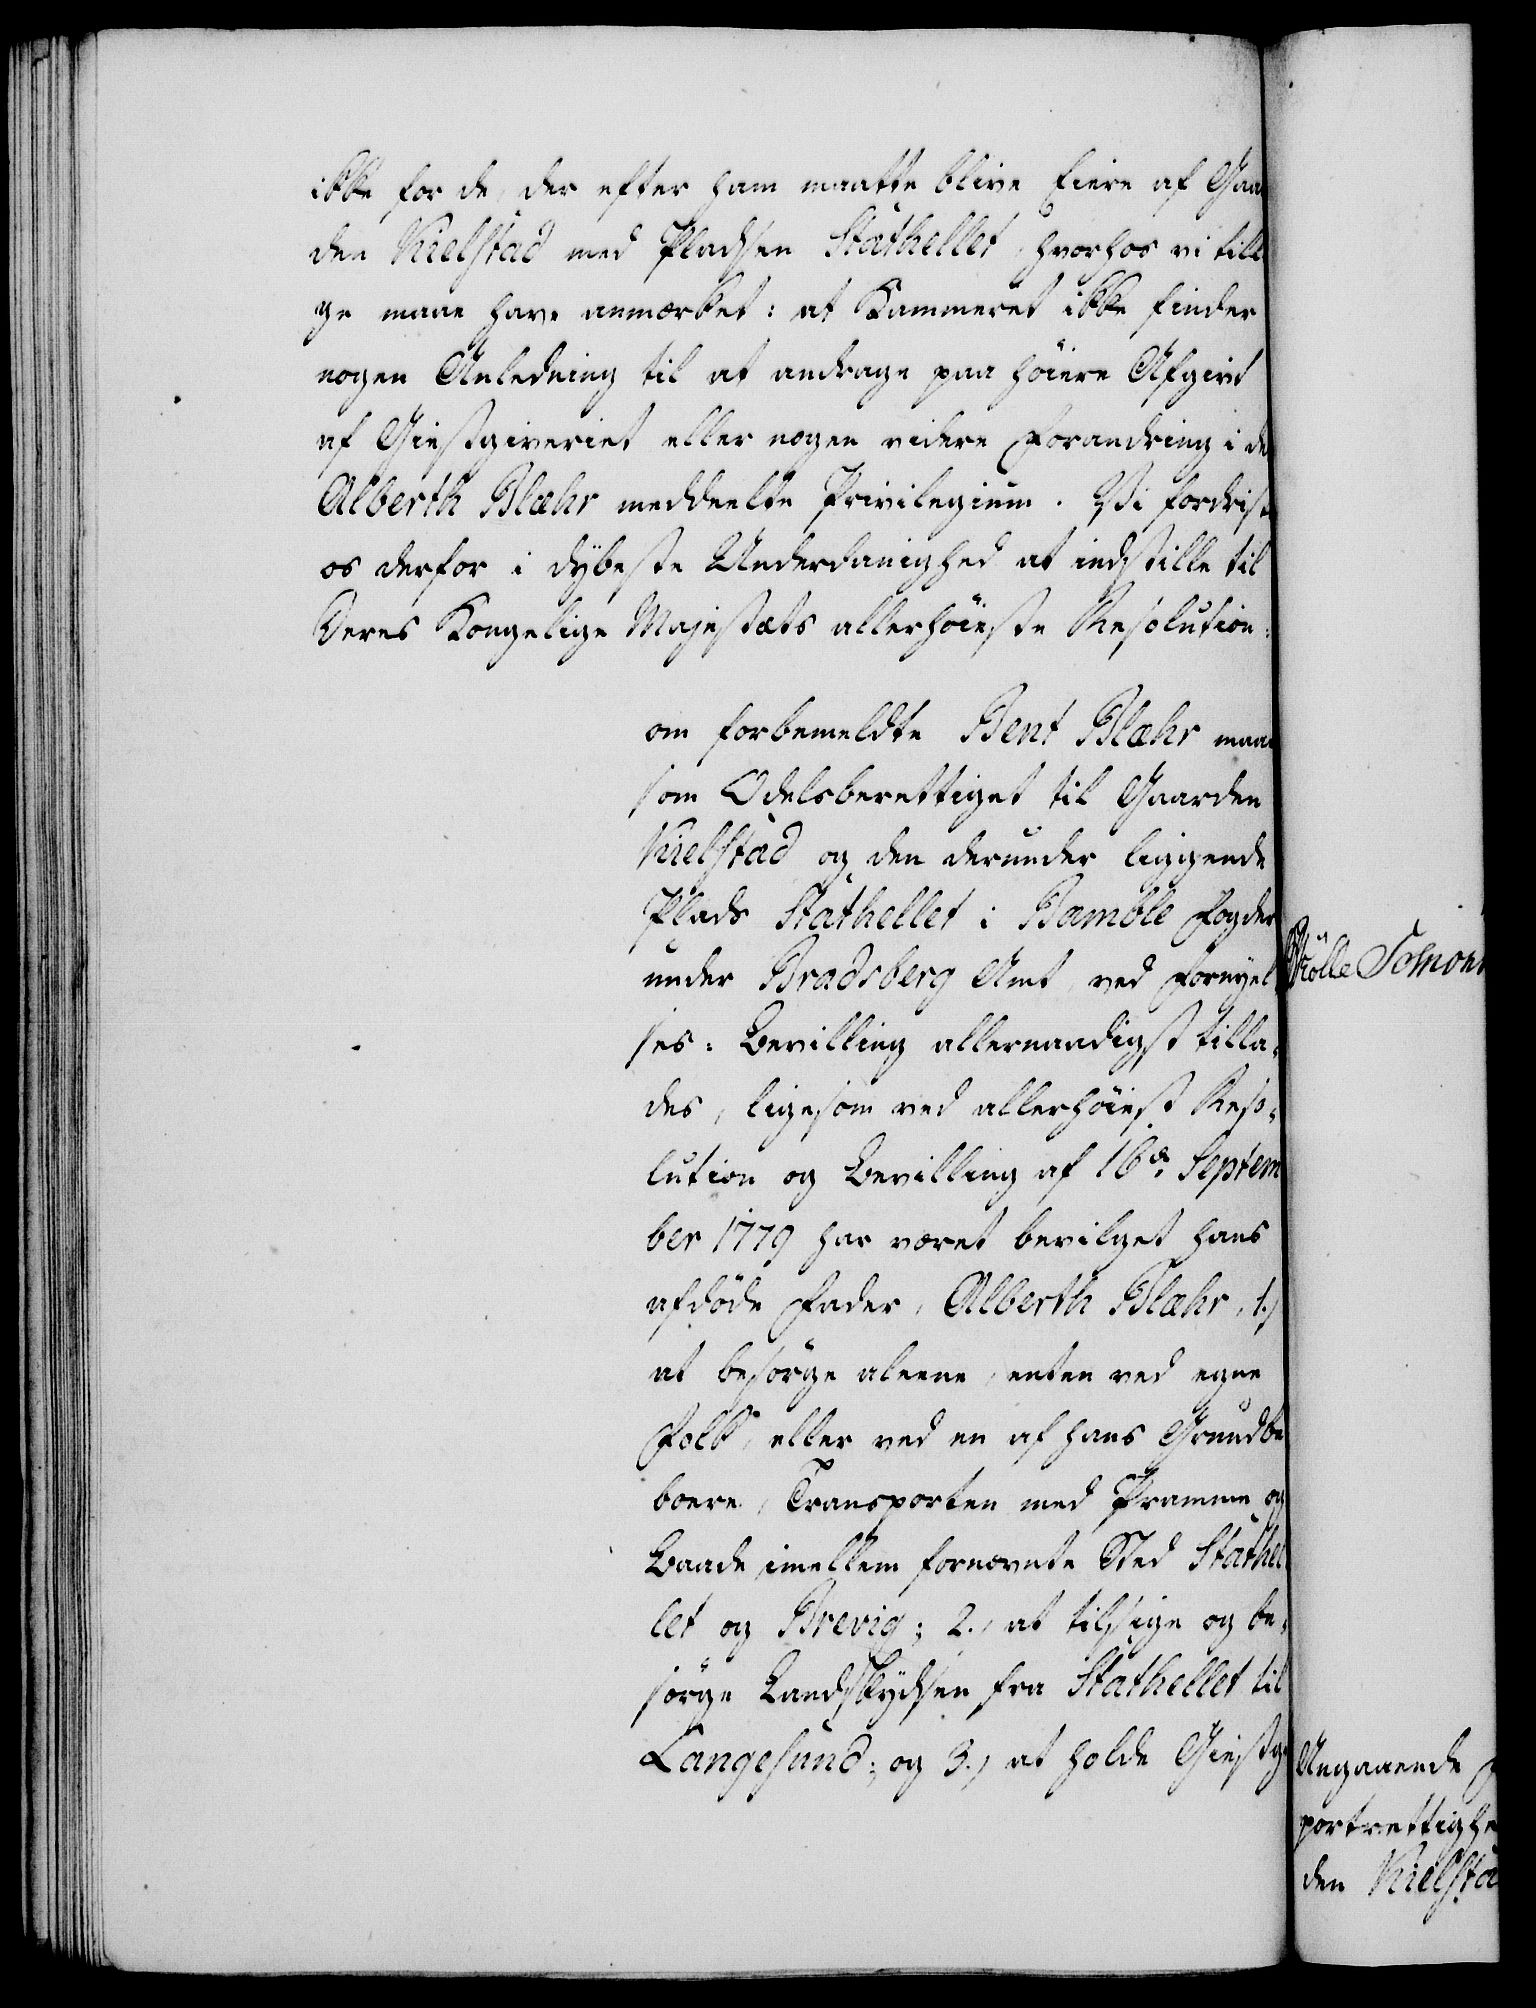 ikke for de, der efter ham maatte blive Eiere af Gaa
den Kielstad med Pladsen Stathellet, hvorhos vi till
ge maae have anmærket: at Kammeret ikke finder
nogen Anledning til at andrage paa höiere Afgivt
af Giestgiveriet eller nogen videre Forandring i de
Alberth Blæhr meddeelte Privilegium. Vi fordrist
os derfor i dybeste Underdanighed at indstille til
Deres Kongelige Majestæts allerhöieste Resolution:
om forbemeldte Bent Blæhr maa
som Odelsberettiget til Gaarden
Kielstad og den derunder liggende
Plads Stathellet i Bamble Fogder
under Bradsberg Amt, ved Fornyel
ses: Bevilling allernaadigst tilla,
des, ligesom ved allerhöiest Reso,
lution og Bevilling af 16de Septem
ber 1779 har været bevilget hans
afdöde Fader, Alberth Blæhr, 1.)
at besörge aleene, enten ved egne
Folk, eller ved en af hans Grundbe
boere, Transporten med Pramme og
Baade imellem fornævnte Sted Stathel
let og Brevig; 2.) at tilsige og be,
sörge Landskydsen fra Stathellet til
Langesund; og 3.) at holde Giestg
Angaaende
portrettighe
den Kielsta